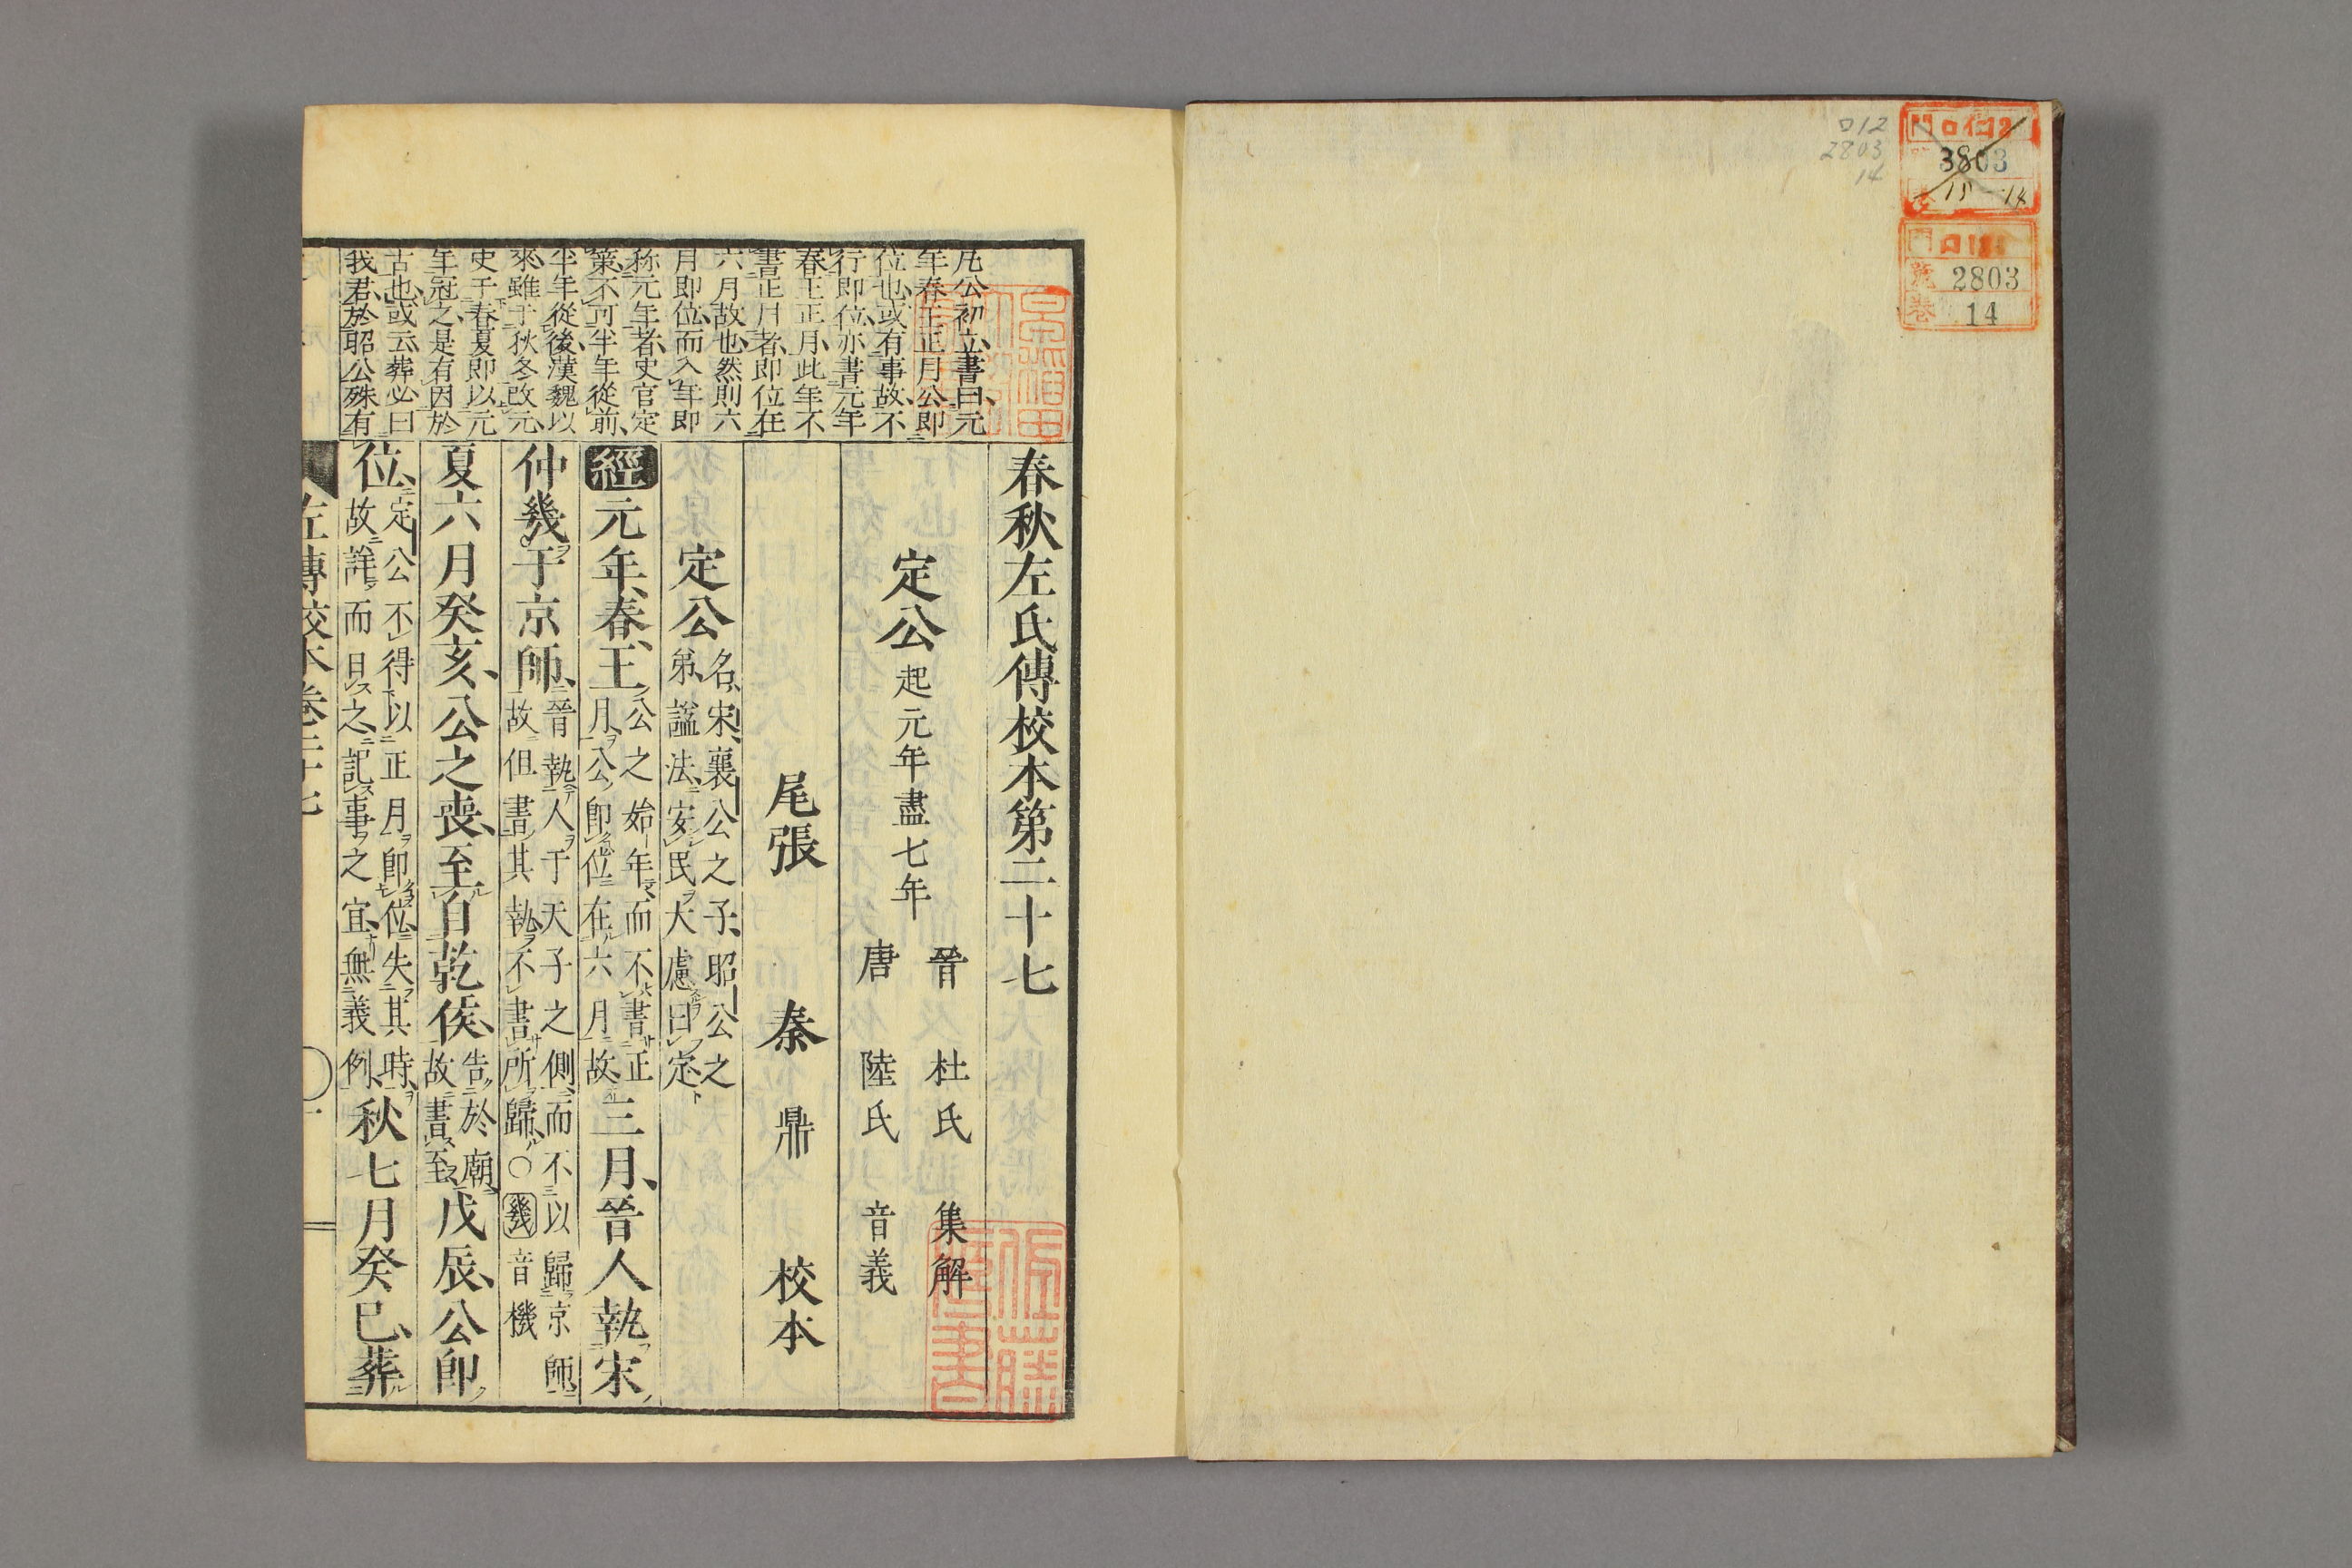 012
2803
14
3803
15-14
2803
號
卷
14
凢公初立書曰元
年春王正月公即
位也或有事故不
行即位亦書元年
春王正月此年不
書正月者即位在
六月故也然則六
月即位而入年即
称元年者史官定
策不可半年從前
半年從後漢魏以
來雖于秋冬改元
史于春夏即以元
年冠之是有因於
古也或云葬必曰
我君於昭公殊有
春秋左氏傳校本第二十七
定公起元年盡七年
晉 杜氏 集解
唐 陸氏 音義
尾張 秦 鼎 校本
定公名宋襄公之子昭公之弟謚法安民大慮曰定
經元年春王公之始年而不書正月公即位在六月故三月晉人執宋
仲幾于京師晉執人于天子之側而不以歸京師故但書其執不書所歸○幾音機
夏六月癸亥公之喪至自乾侯告於廟故書至戊辰公即
位定公不得以正月即位失其時故詳而日之記事之宜無義例秋七月癸巳葬
左傳校本卷二十七
一
佐藤